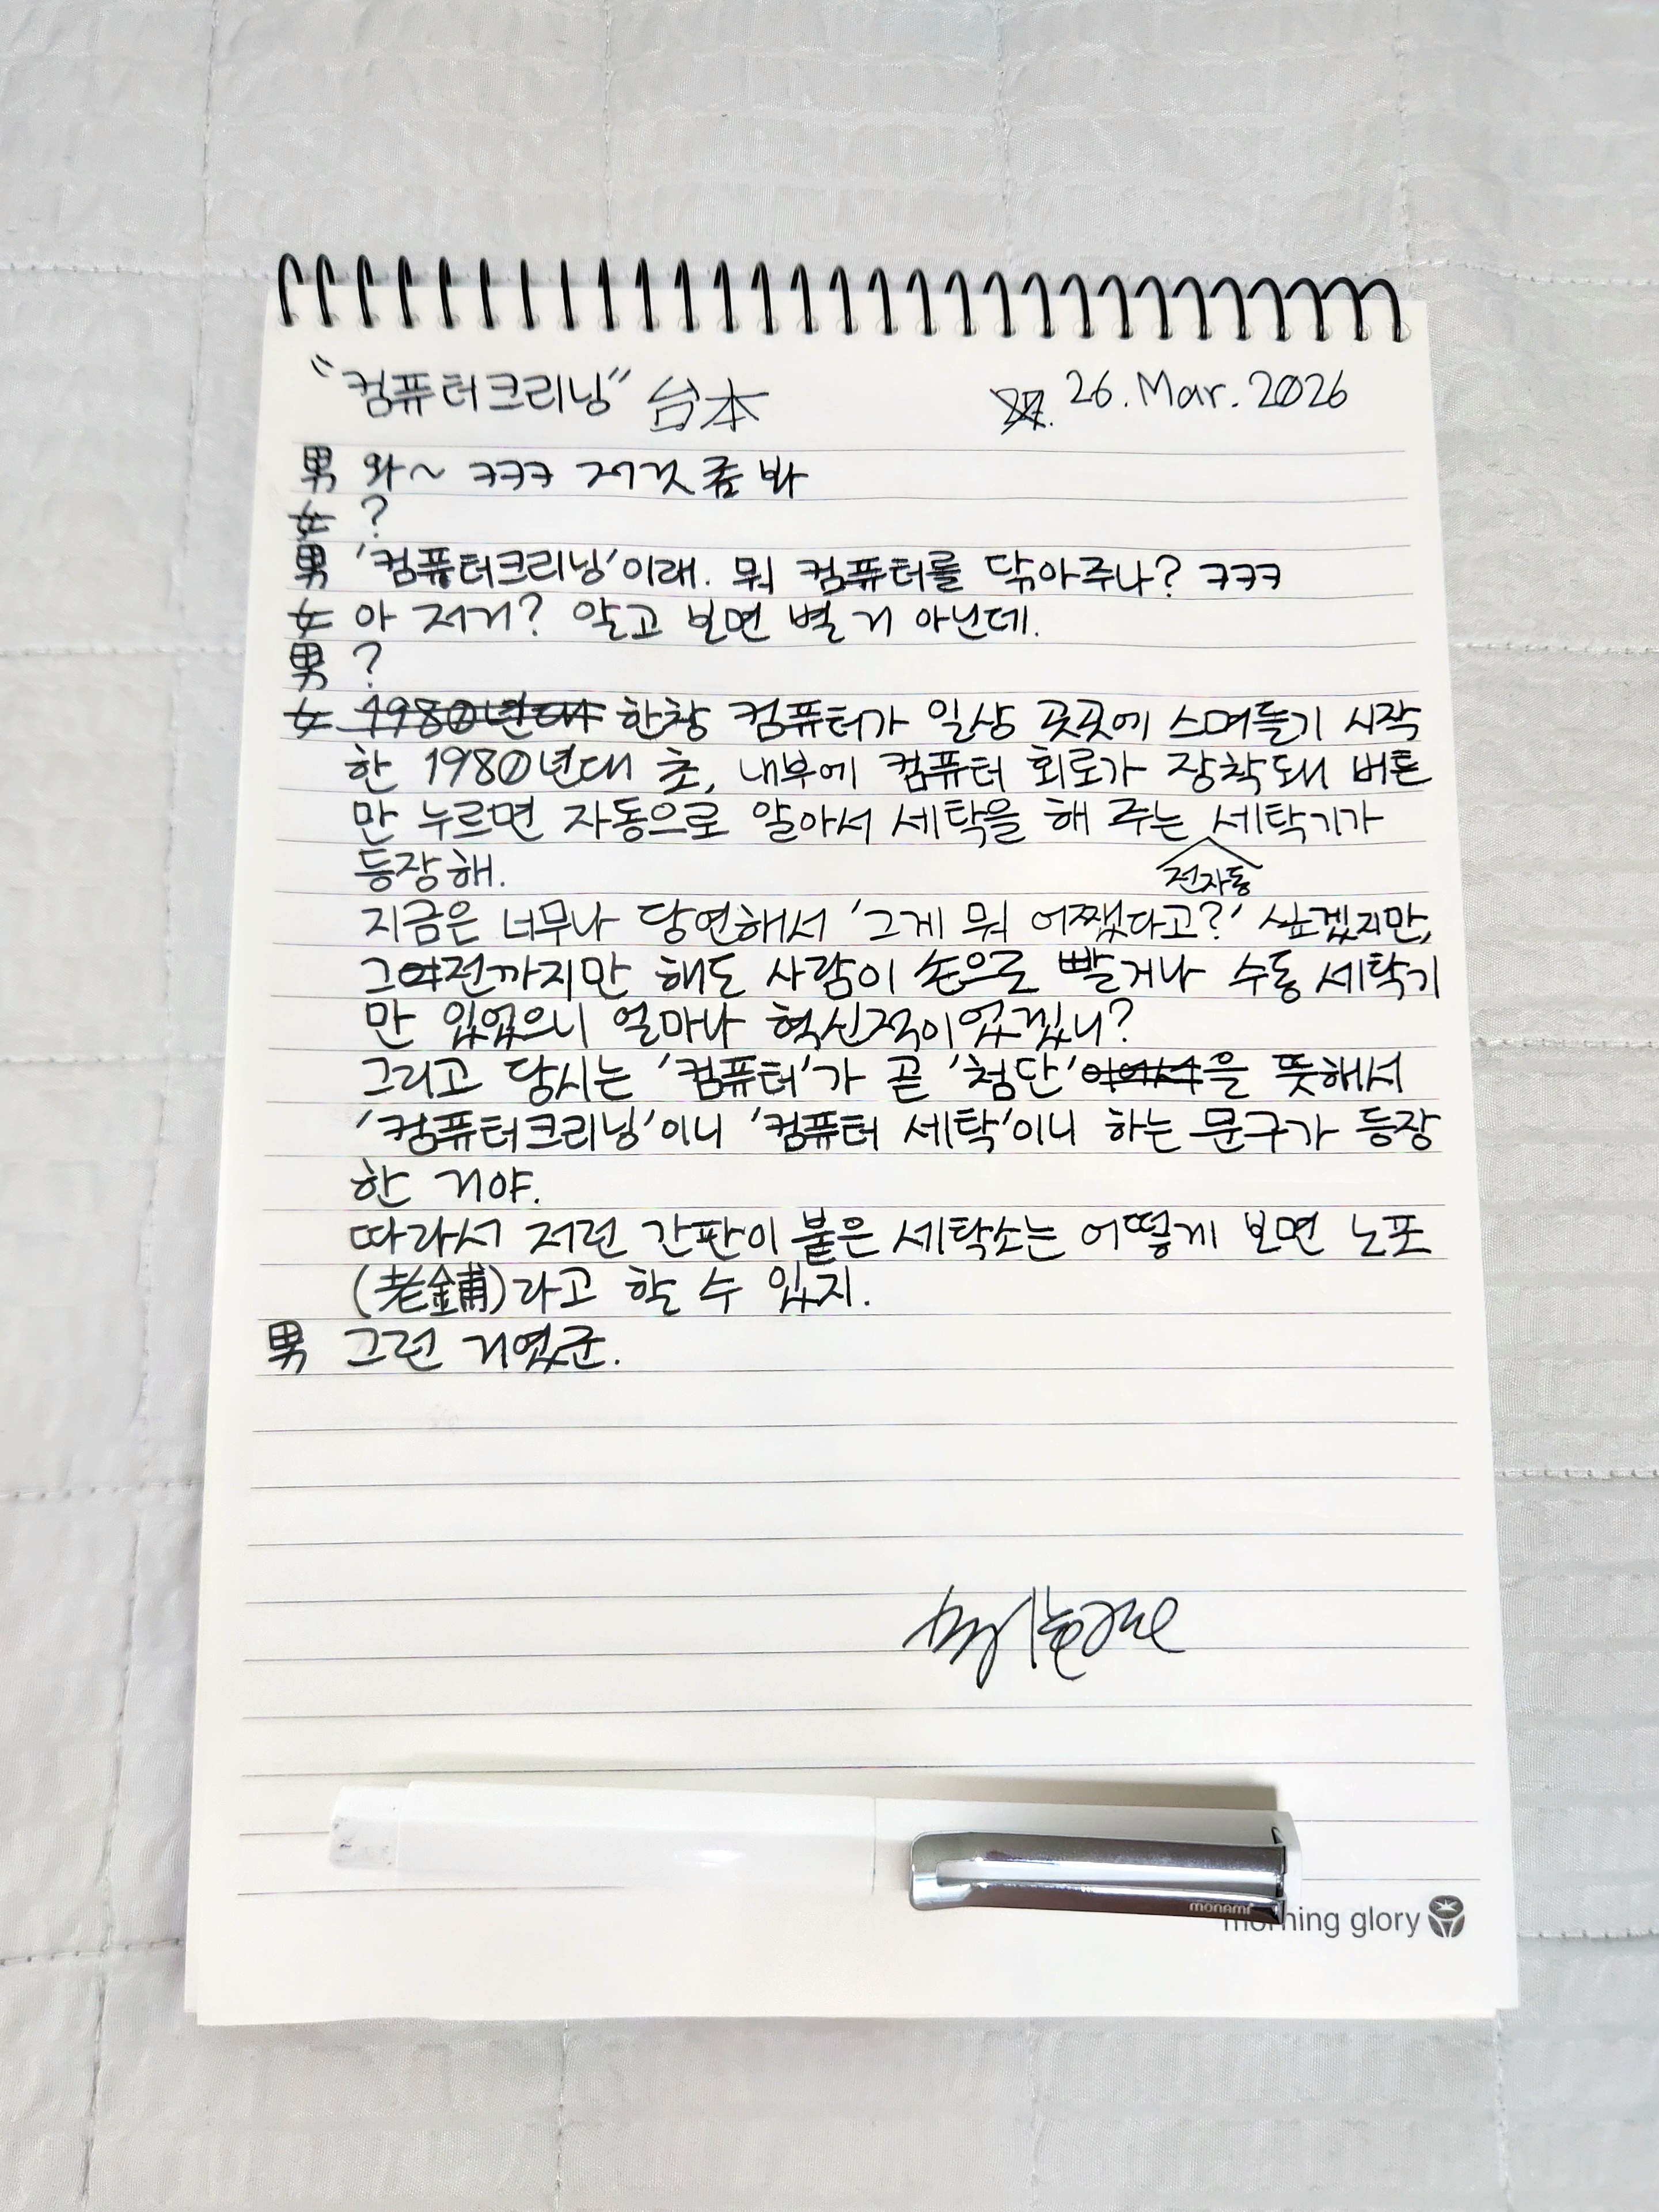 "컴퓨터크리닝" 台本 26. Mar. 2026
男 와~ ㅋㅋㅋ 저것 좀 봐
女 ?
男 '컴퓨터크리닝'이래. 뭐 컴퓨터를 닦아주나? ㅋㅋㅋ
女 아 저거? 알고 보면 별 거 아닌데.
男 ?
女 1980년대 한창 컴퓨터가 일상 곳곳에 스며들기 시작
한 1980년대 초, 내부에 컴퓨터 회로가 장착돼 버튼
만 누르면 자동으로 알아서 세탁을 해 주는 세탁기가
전자동
등장해.
지금은 너무나 당연해서 '그게 뭐 어쨌다고?' 싶겠지만,
그전까지만 해도 사람이 손으로 빨거나 수동 세탁기
만 있었으니 얼마나 혁신적이었겠니?
그리고 당시는 '컴퓨터'가 곧 '첨단'을 뜻해서
'컴퓨터크리닝'이니 '컴퓨터 세탁'이니 하는 문구가 등장
한 거야.
따라서 저런 간판이 붙은 세탁소는 어떻게 보면 노포
(老鋪)라고 할 수 있지.
男 그런 거였군.
monami
morning glory